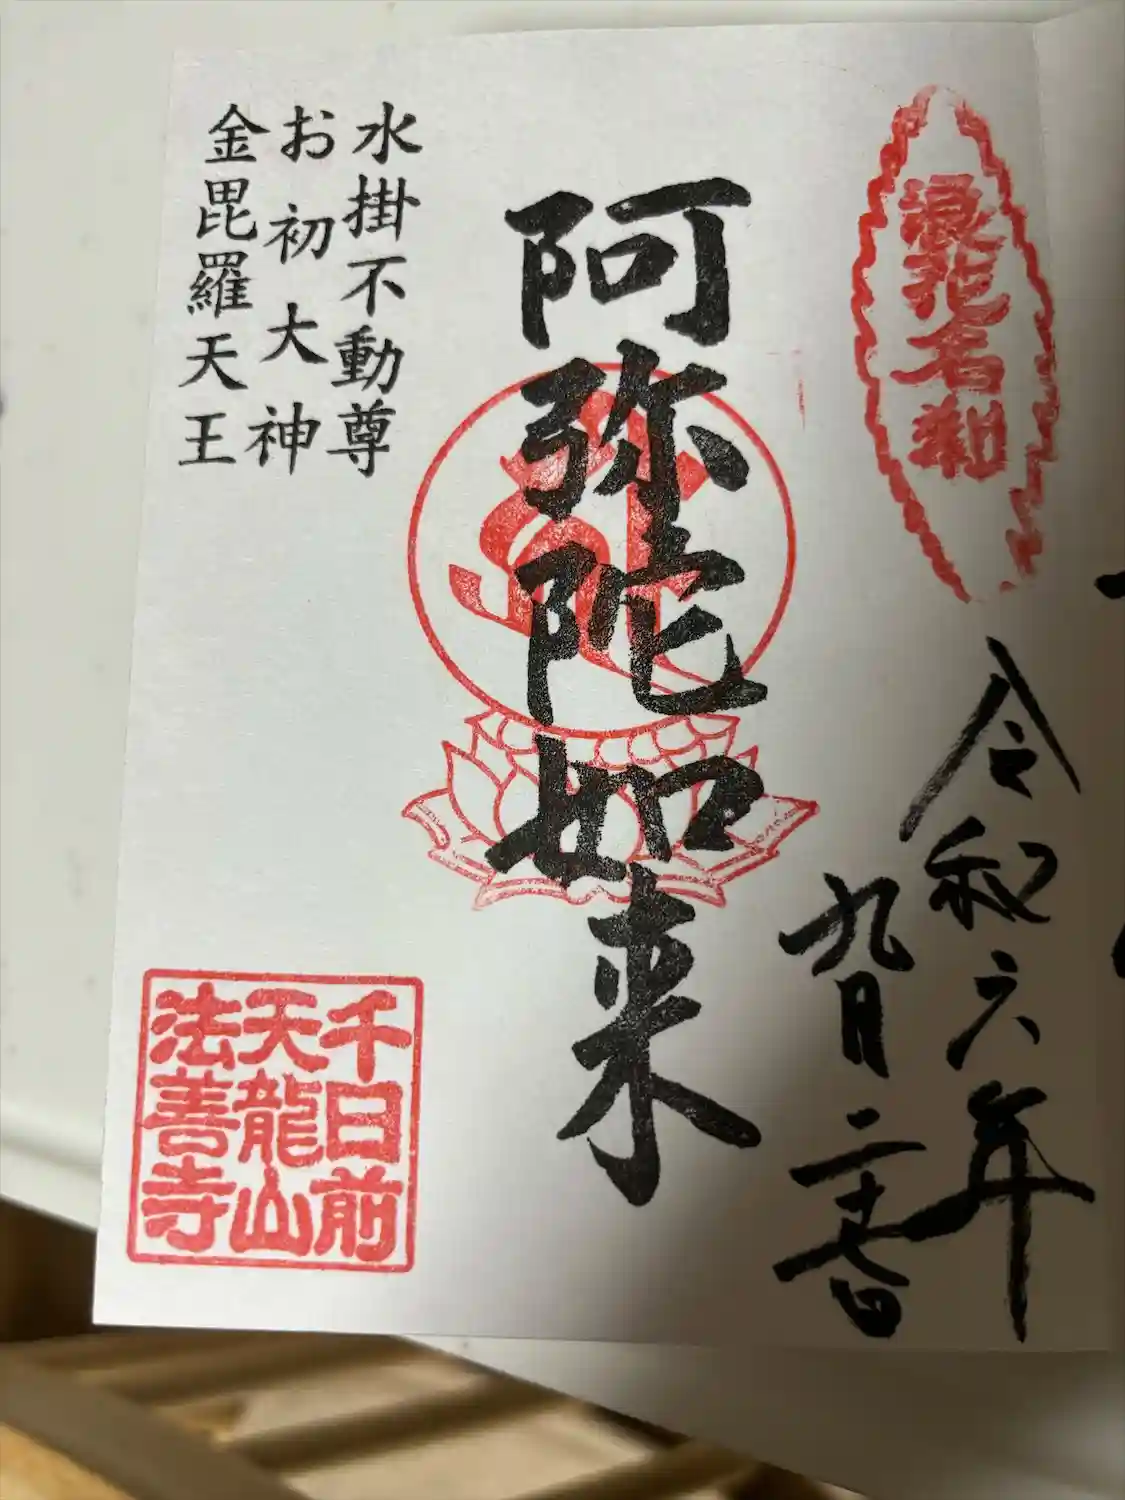 浪花名刹
令和六年
九月二十七日
阿弥陀如来
水掛不動尊
お初大神
金毘羅天王
千日前
天龍山
法善寺